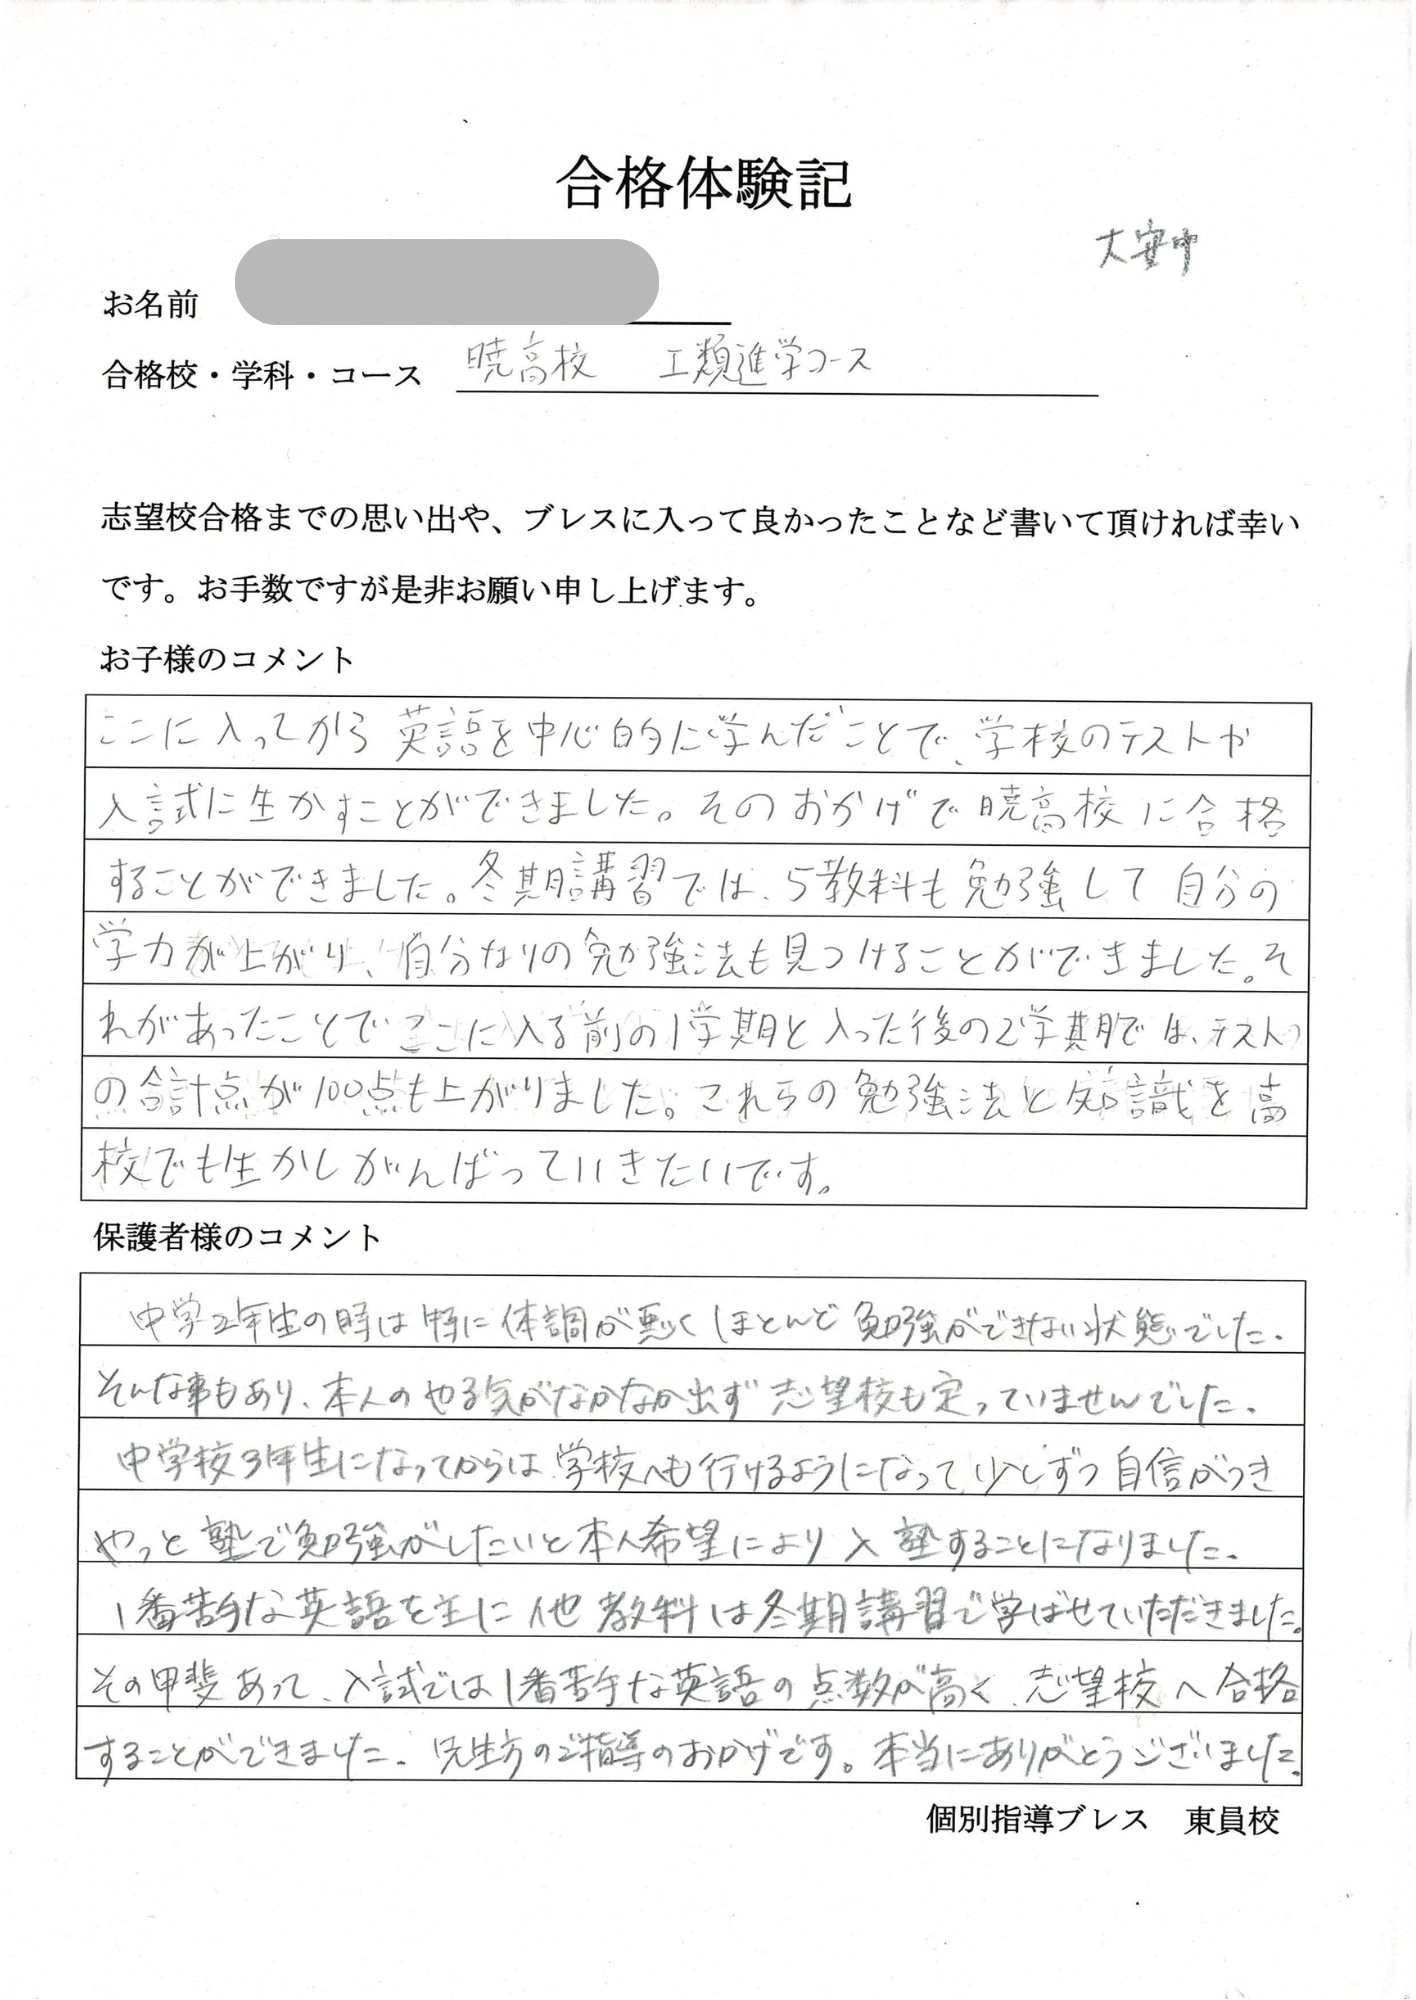 合格体験記
大安中
お名前
合格校・学科・コース 暁高校 Ⅰ類進学コース
志望校合格までの思い出や、ブレスに入って良かったことなど書いて頂ければ幸い
です。お手数ですが是非お願い申し上げます。
お子様のコメント
ここに入ってから英語を中心的に学んだことで、学校のテストや
入試に生かすことができました。そのおかげで暁高校に合格
することができました。冬期講習では、5教科も勉強して自分の
学力が上がり、自分なりの勉強法も見つけることができました。そ
れがあったことでここに入る前の1学期と入った後の2学期では、テスト
の合計点が100点も上がりました。これらの勉強法と知識を高
校でも生かしがんばっていきたいです。
保護者様のコメント
中学2年生の時は特に体調が悪くほとんど勉強ができない状態でした。
そんな事もあり、本人のやる気がなかなか出ず志望校も定っていませんでした。
中学校3年生になってからは学校へも行けるようになって、少しずつ自信がつき
やっと塾で勉強がしたいと本人希望により入塾することになりました。
1番苦手な英語を主に他教科は冬期講習で学ばせていただきました。
その甲斐あって、入試では1番苦手な英語の点数が高く、志望校へ合格
することができました。先生方のご指導のおかげです。本当にありがとうございました。
個別指導ブレス 東員校